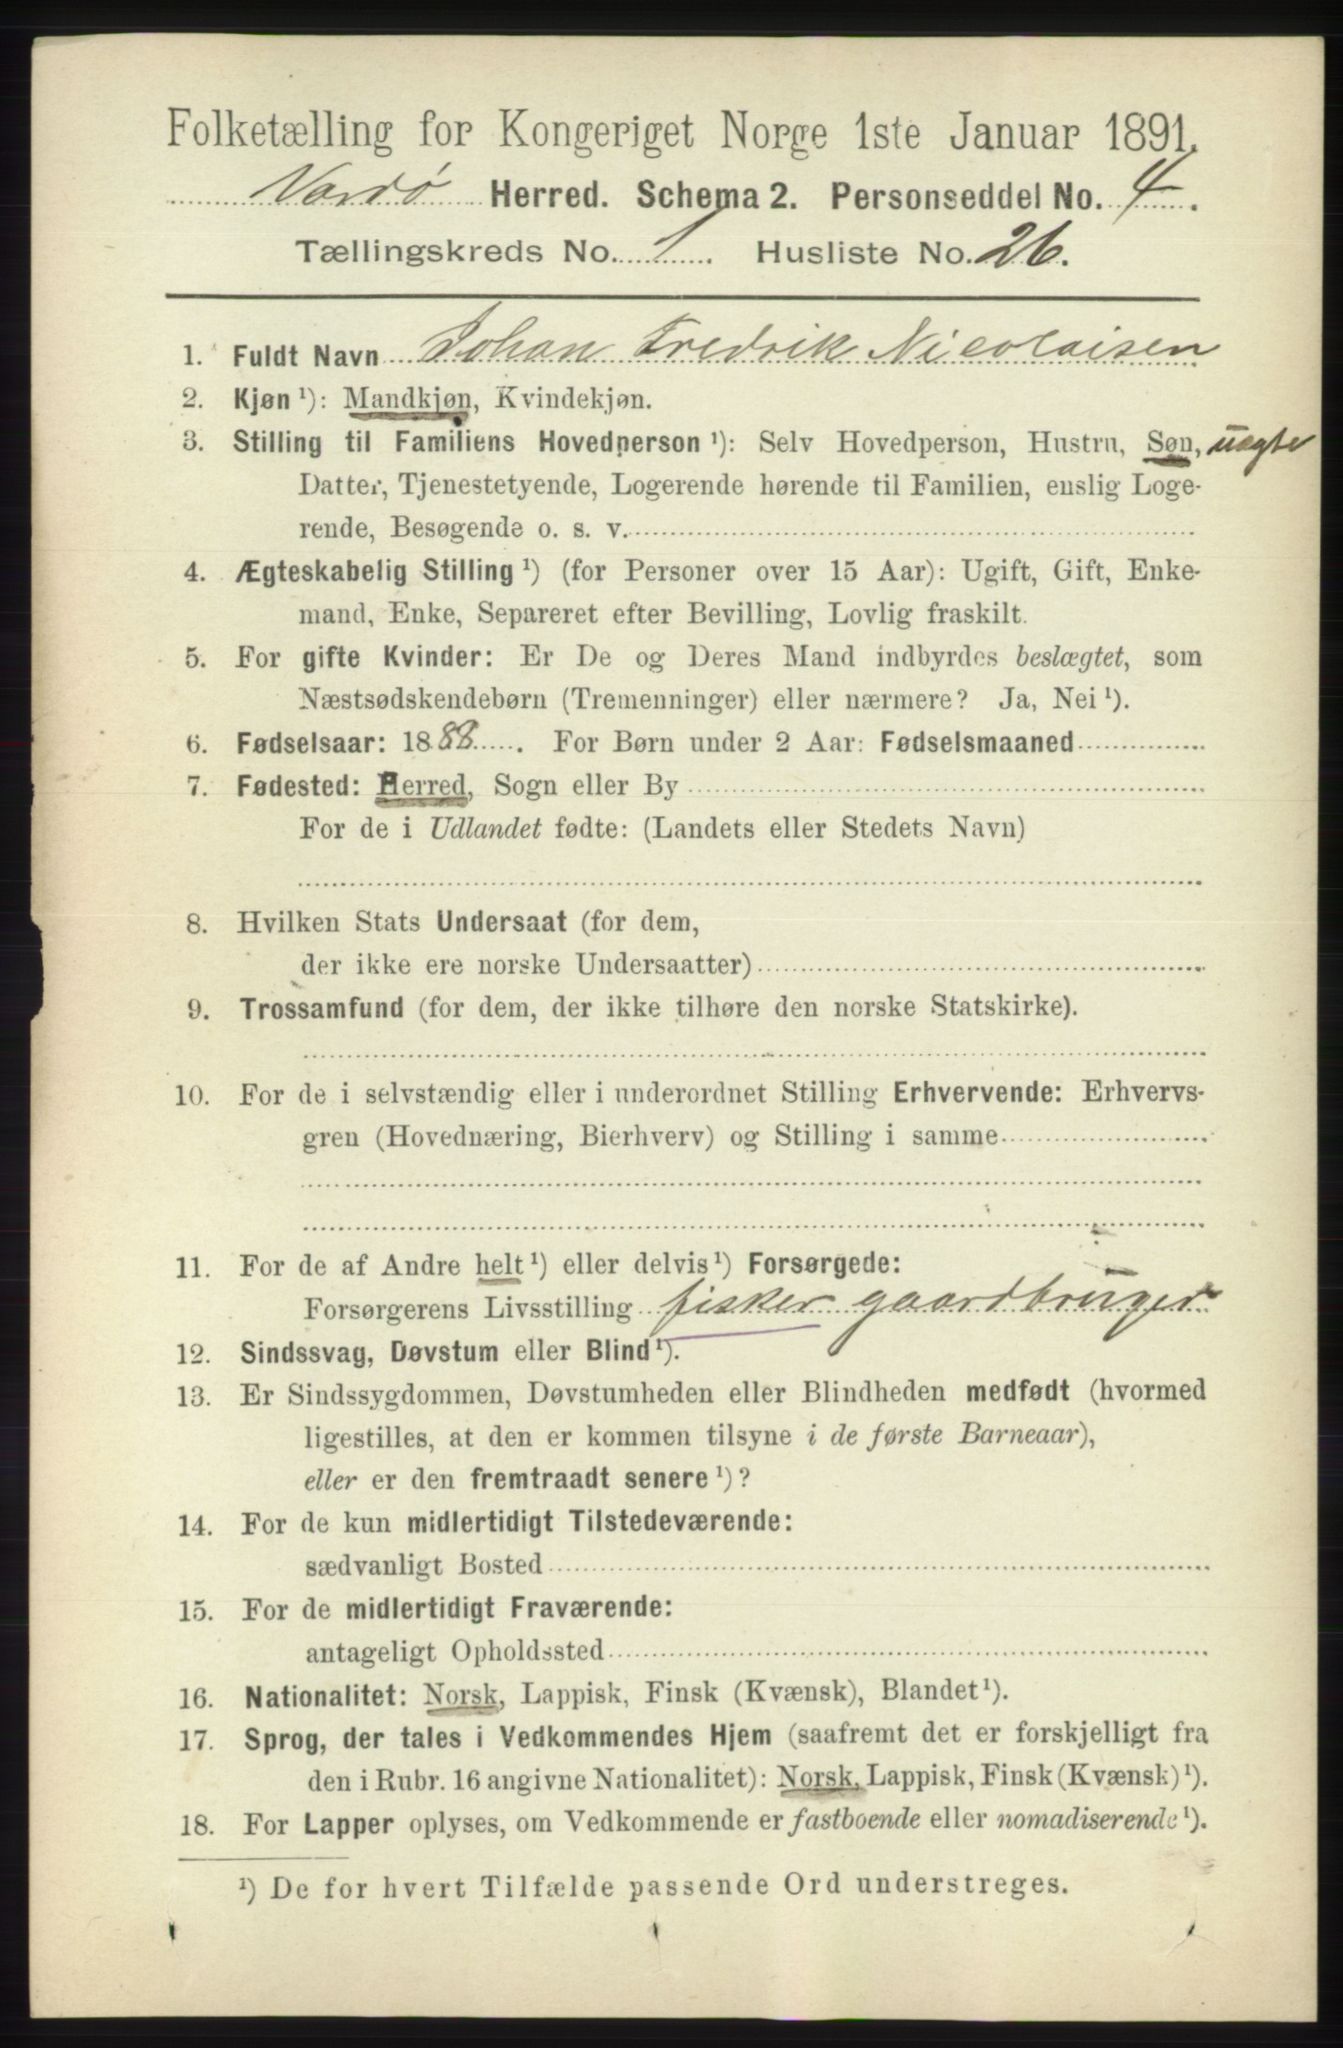 Folketælling for Kongeriget Norge 1ste Januar 1891.
Vardø Herred. Schema 2. Personseddel No. 4.
Tællingskreds No. 1. Husliste No. 26.
1. Fuldt Navn Johan Fredrik Nicolaisen
2. Kjøn ¹): Mandkjøn, Kvindekjøn.
3. Stilling til Familiens Hovedperson ¹): Selv Hovedperson, Hustru, Søn, uægte
Datter, Tjenestetyende, Logerende hørende til Familien, enslig Loge-
rende, Besøgende o. s. v.
4. Ægteskabelig Stilling ¹) (for Personer over 15 Aar): Ugift, Gift, Enke-
mand, Enke, Separeret efter Bevilling, Lovlig fraskilt.
5. For gifte Kvinder: Er De og Deres Mand indbyrdes beslægtet, som
Næstsødskendebørn (Tremenninger) eller nærmere? Ja, Nei ¹).
6. Fødselsaar: 1888. For Børn under 2 Aar: Fødselsmaaned
7. Fødested: Herred, Sogn eller By
For de i Udlandet fødte: (Landets eller Stedets Navn)
8. Hvilken Stats Undersaat (for dem,
der ikke ere norske Undersaatter)
9. Trossamfund (for dem, der ikke tilhøre den norske Statskirke).
10. For de i selvstændig eller i underordnet Stilling Erhvervende: Erhvervs-
gren (Hovednæring, Bierhverv) og Stilling i samme
11. For de af Andre helt ¹) eller delvis ¹) Forsørgede:
Forsørgerens Livsstilling fisker gaardbruger
12. Sindssvag, Døvstum eller Blind ¹).
13. Er Sindssygdommen, Døvstumheden eller Blindheden medfødt (hvormed
ligestilles, at den er kommen tilsyne i de første Barneaar),
eller er den fremtraadt senere ¹)?
14. For de kun midlertidigt Tilstedeværende:
sædvanligt Bosted
15. For de midlertidigt Fraværende:
antageligt Opholdssted
16. Nationalitet: Norsk, Lappisk, Finsk (Kvænsk), Blandet ¹).
17. Sprog, der tales i Vedkommendes Hjem (saafremt det er forskjelligt fra
den i Rubr. 16 angivne Nationalitet): Norsk, Lappisk, Finsk (Kvænsk) ¹).
18. For Lapper oplyses, om Vedkommende er fastboende eller nomadiserende ¹).
¹) De for hvert Tilfælde passende Ord understreges.